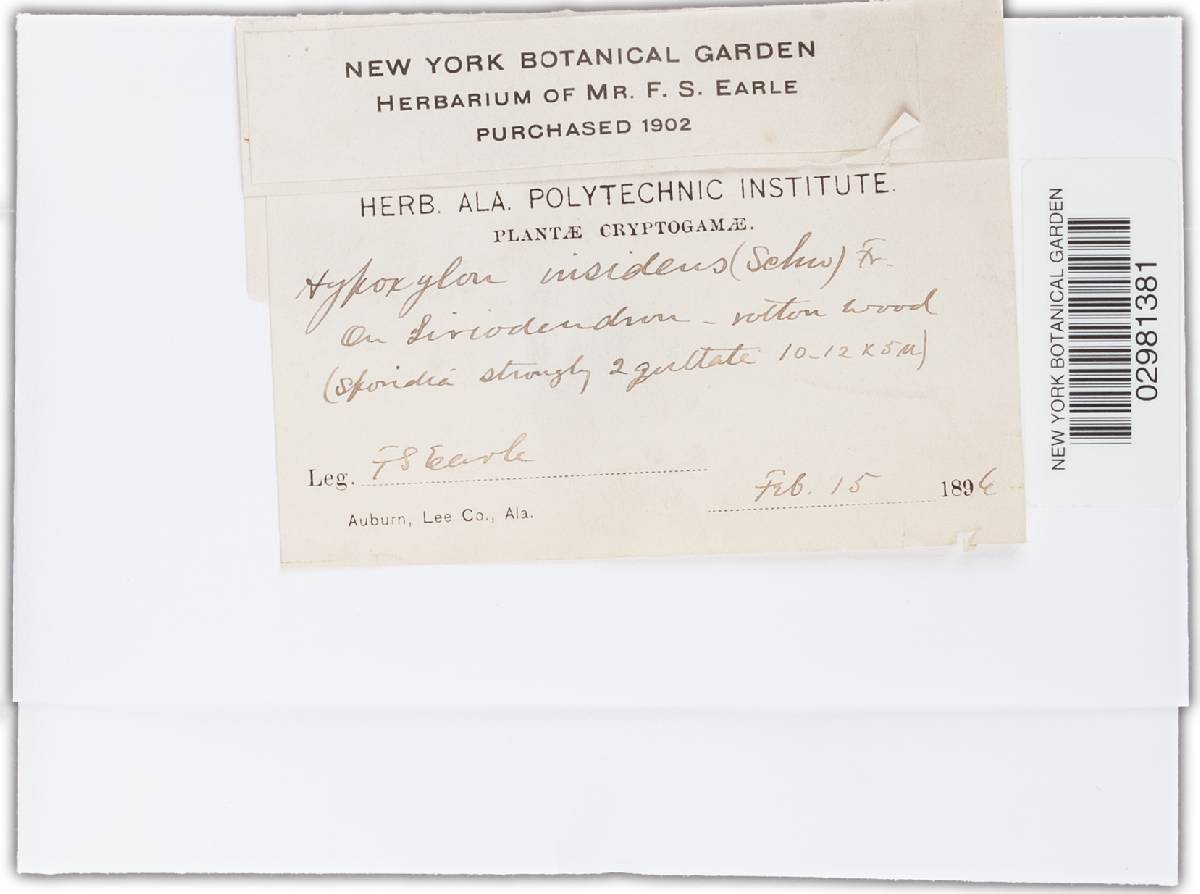 NEW YORK BOTANICAL GARDEN
HERBARIUM OF MR. F. S. EARLE
PURCHASED 1902
HERB. ALA. POLYTECHNIC INSTITUTE.
PLANTÆ CRYPTOGAMÆ.
Hypoxylon insidens (Schw) Fr.
On Liriodendron - rotton wood
(Sporidia strongly 2 guttate 10-12 x 5 µ)
Leg. F S Earle
Feb. 15 1896
Auburn, Lee Co., Ala.
NEW YORK BOTANICAL GARDEN
02981381